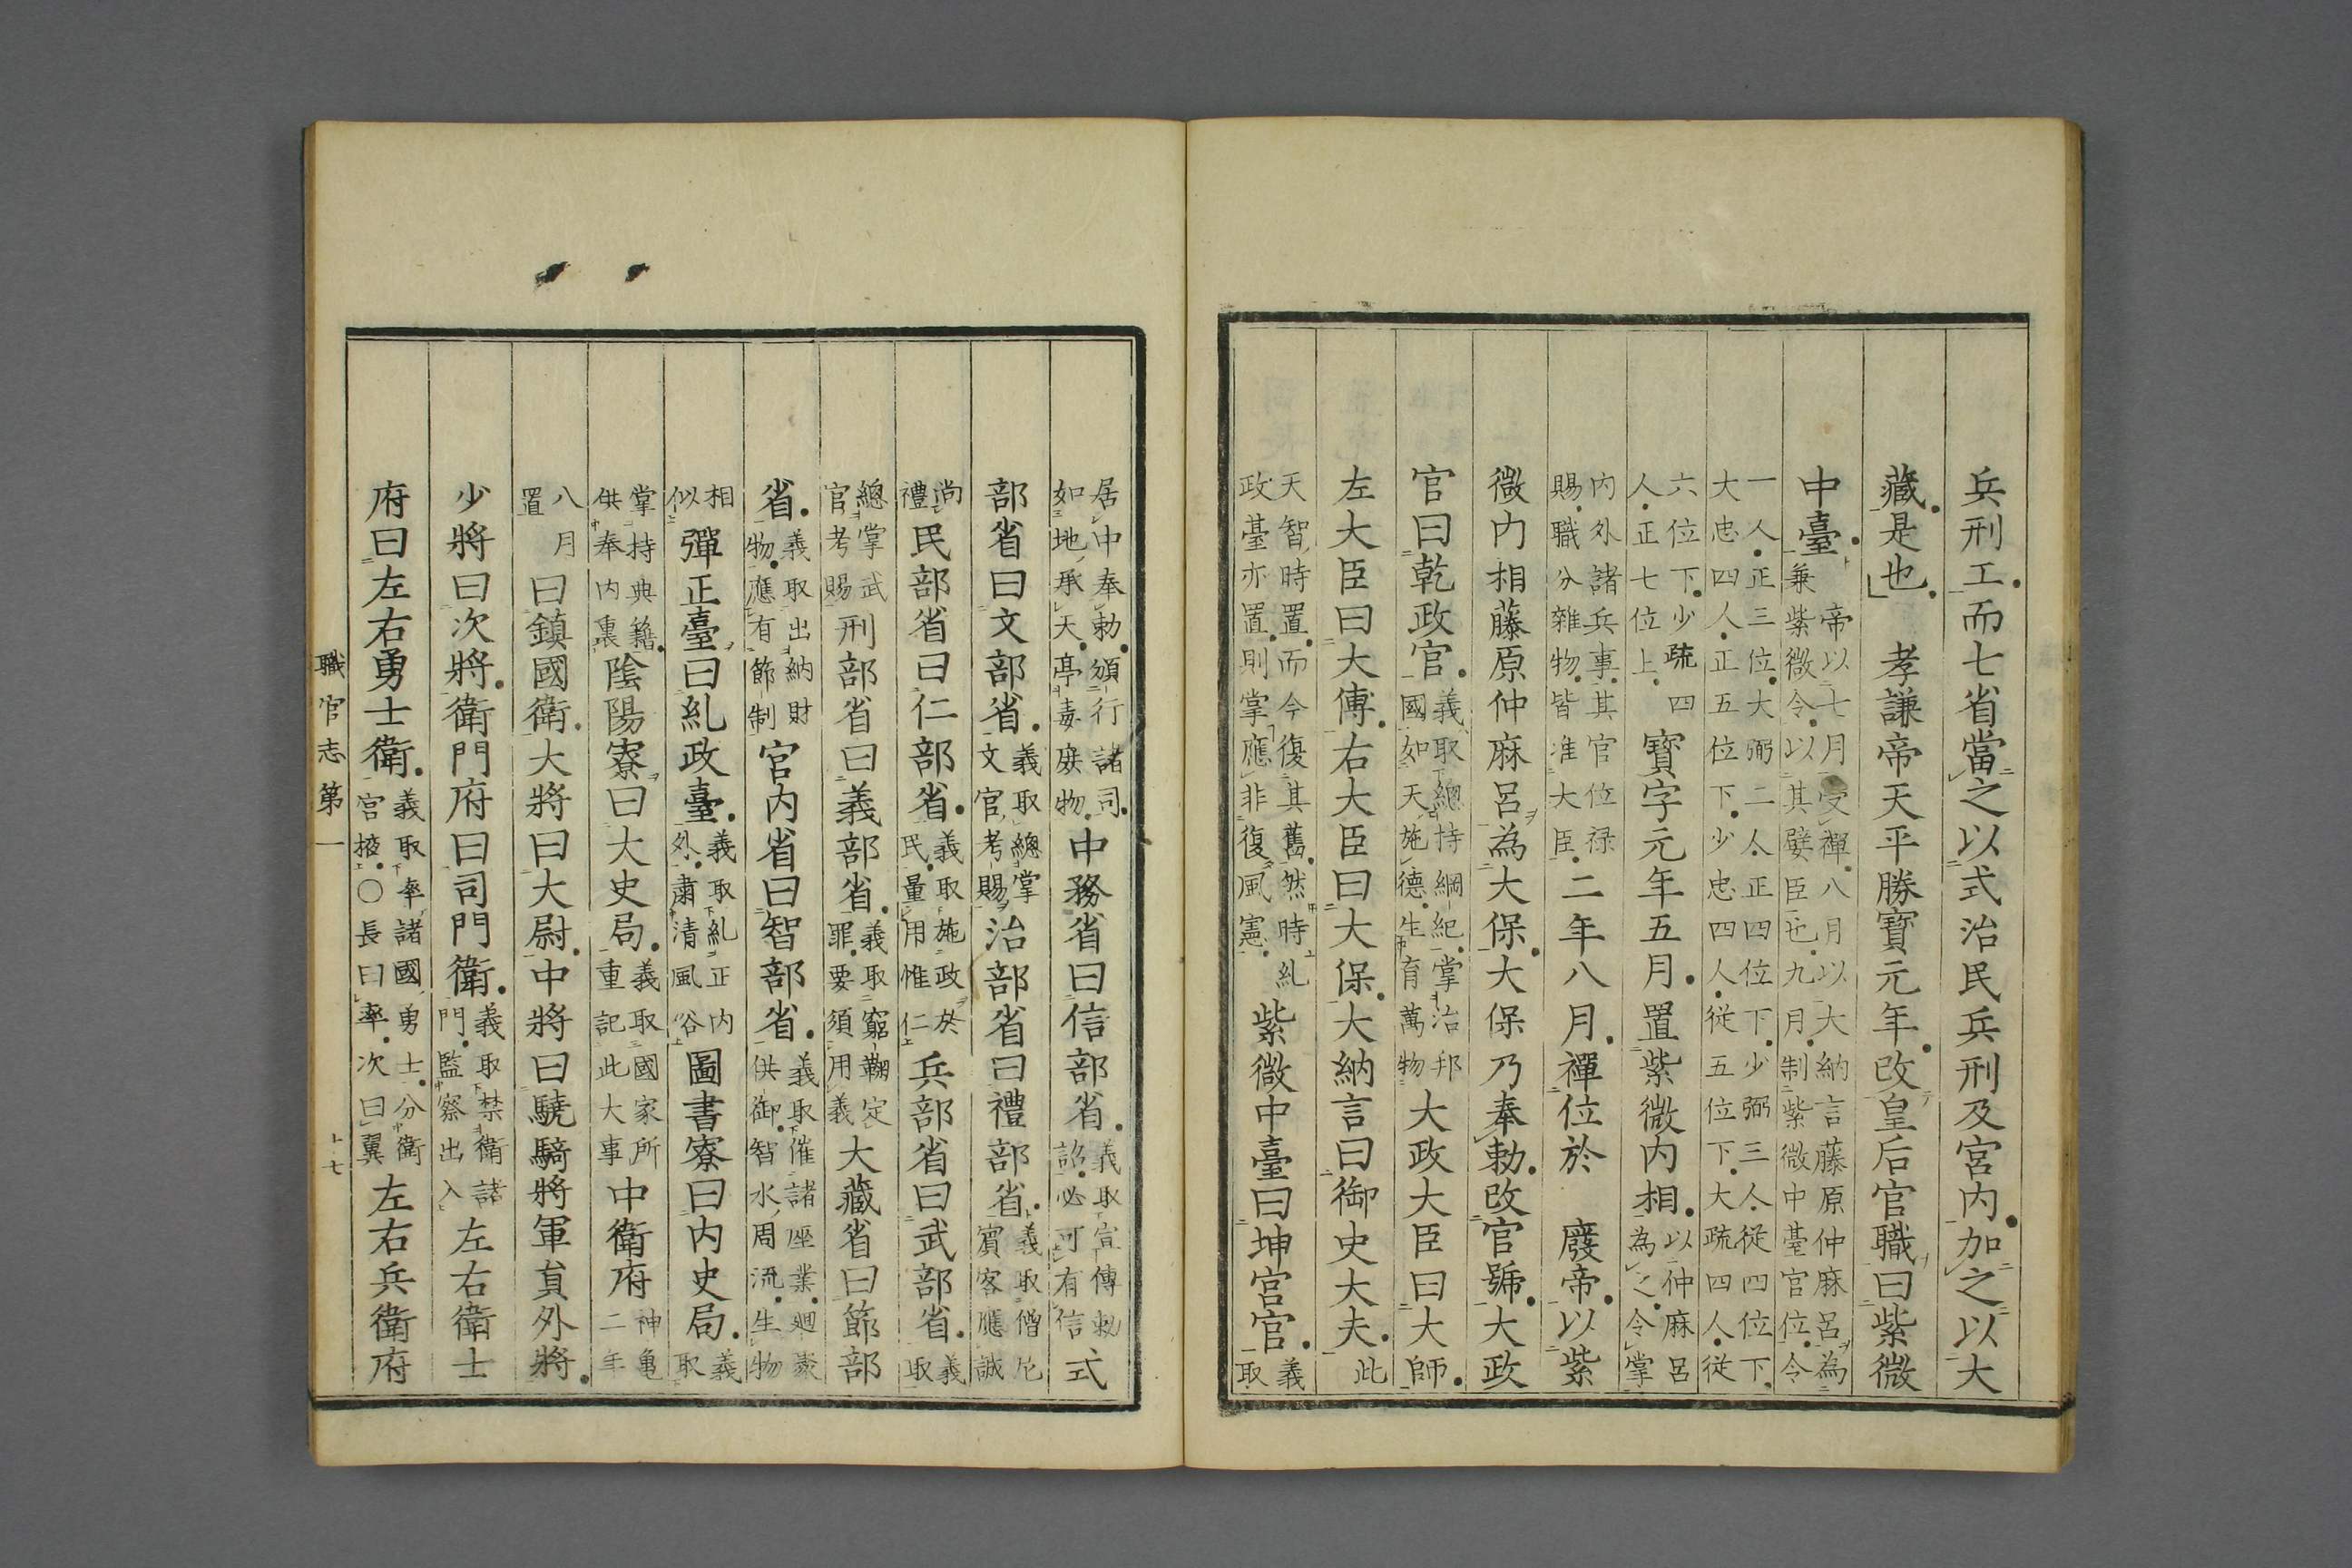 兵刑工而七省當之以式治民兵刑及宮内加之以大
藏是也 孝謙帝天平勝寶元年改皇后官職曰紫微
中臺帝以七月受禪八月以大納言藤原仲麻呂為
兼紫微令以其嬖臣也九月制紫微中臺官位令
一人正三位大弼二人正四位下少弼三人從四位下
大忠四人正五位下少忠四人從五位下大疏四人從
六位下少疏四
人正七位上寳字元年五月置紫微内相以仲麻呂
為之令掌
内外諸兵事其官位禄
賜職分雜物皆准大臣二年八月禪位於 廢帝以紫
微内相藤原仲麻呂為大保大保乃奉勅改官號大政
官曰乾政官義取總持綱紀掌治邦
國如天施德生育萬物大政大臣曰大師
左大臣曰大傳右大臣曰大保大納言曰御史大夫此
天智時置而今復其舊然時糺
政臺亦置則掌應非復風憲紫微中臺曰坤宮官義
取
居中奉勅頒行諸司
如地承天亭毒庶物中務省曰信部省義取宣傳勅
詔必可有信式
部省曰文部省義取總掌
文官考賜治部省曰禮部省義取僧尼
賓客應誠
尚
禮民部省曰仁部省義取施政於
民量用惟仁兵部省曰武部省義
取
總掌武
官考賜刑部省曰義部省義取窮鞠定
罪要須用義大藏省曰節部
省義取出納財
物應有節制官内省曰智部省義取催諸座業廻
供御智水周流生物
相
似彈正臺曰糺政臺義取糺正内
外肅清風俗圖書寮曰内史局義
取
掌持典籍
供奉内裏陰陽寮曰大史局義取國家所
重記此大事中衛府神亀
二年
八月
置曰鎮國衛大將曰大尉中將曰驍騎將軍員外將
少將曰次將衛門府曰司門衛義取禁衛諸
門監察出入左右衛士
府曰左右勇士衛義取率諸國勇士分衛
宮掖○長曰率次曰翼左右兵衛府
職官志第一 十七